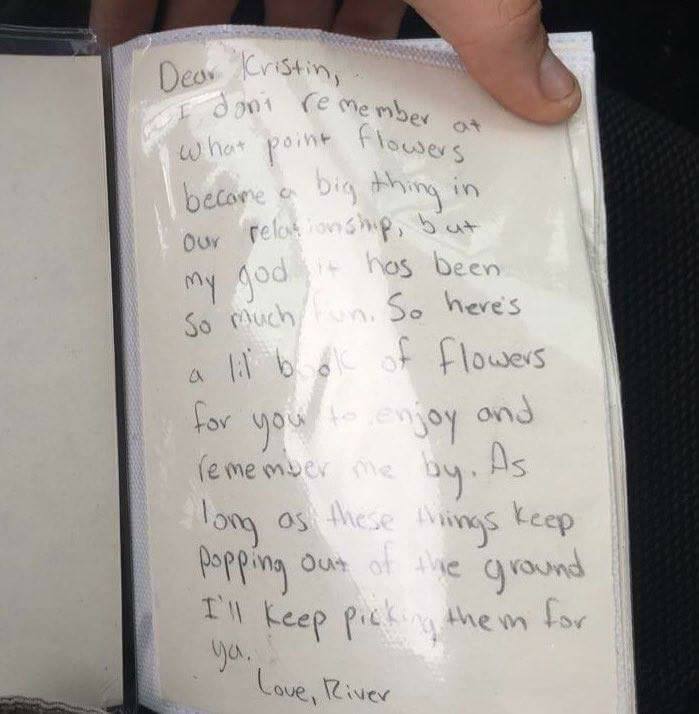 Dear Kristin,
I don't remember at
what point flowers
became a big thing in
our relationship, but
my god it has been
so much fun. So here's
a lil' book of flowers
for you to enjoy and
remember me by. As
long as these things keep
popping out of the ground
I'll keep picking them for
ya.
Love, River